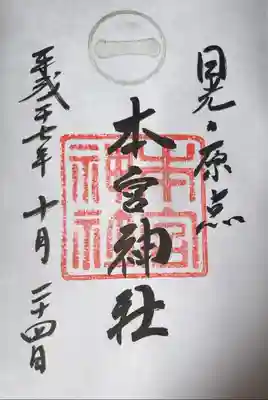 一
日光の原点
本宮神社
本宮神社
平成二十七年 十月 二十四日